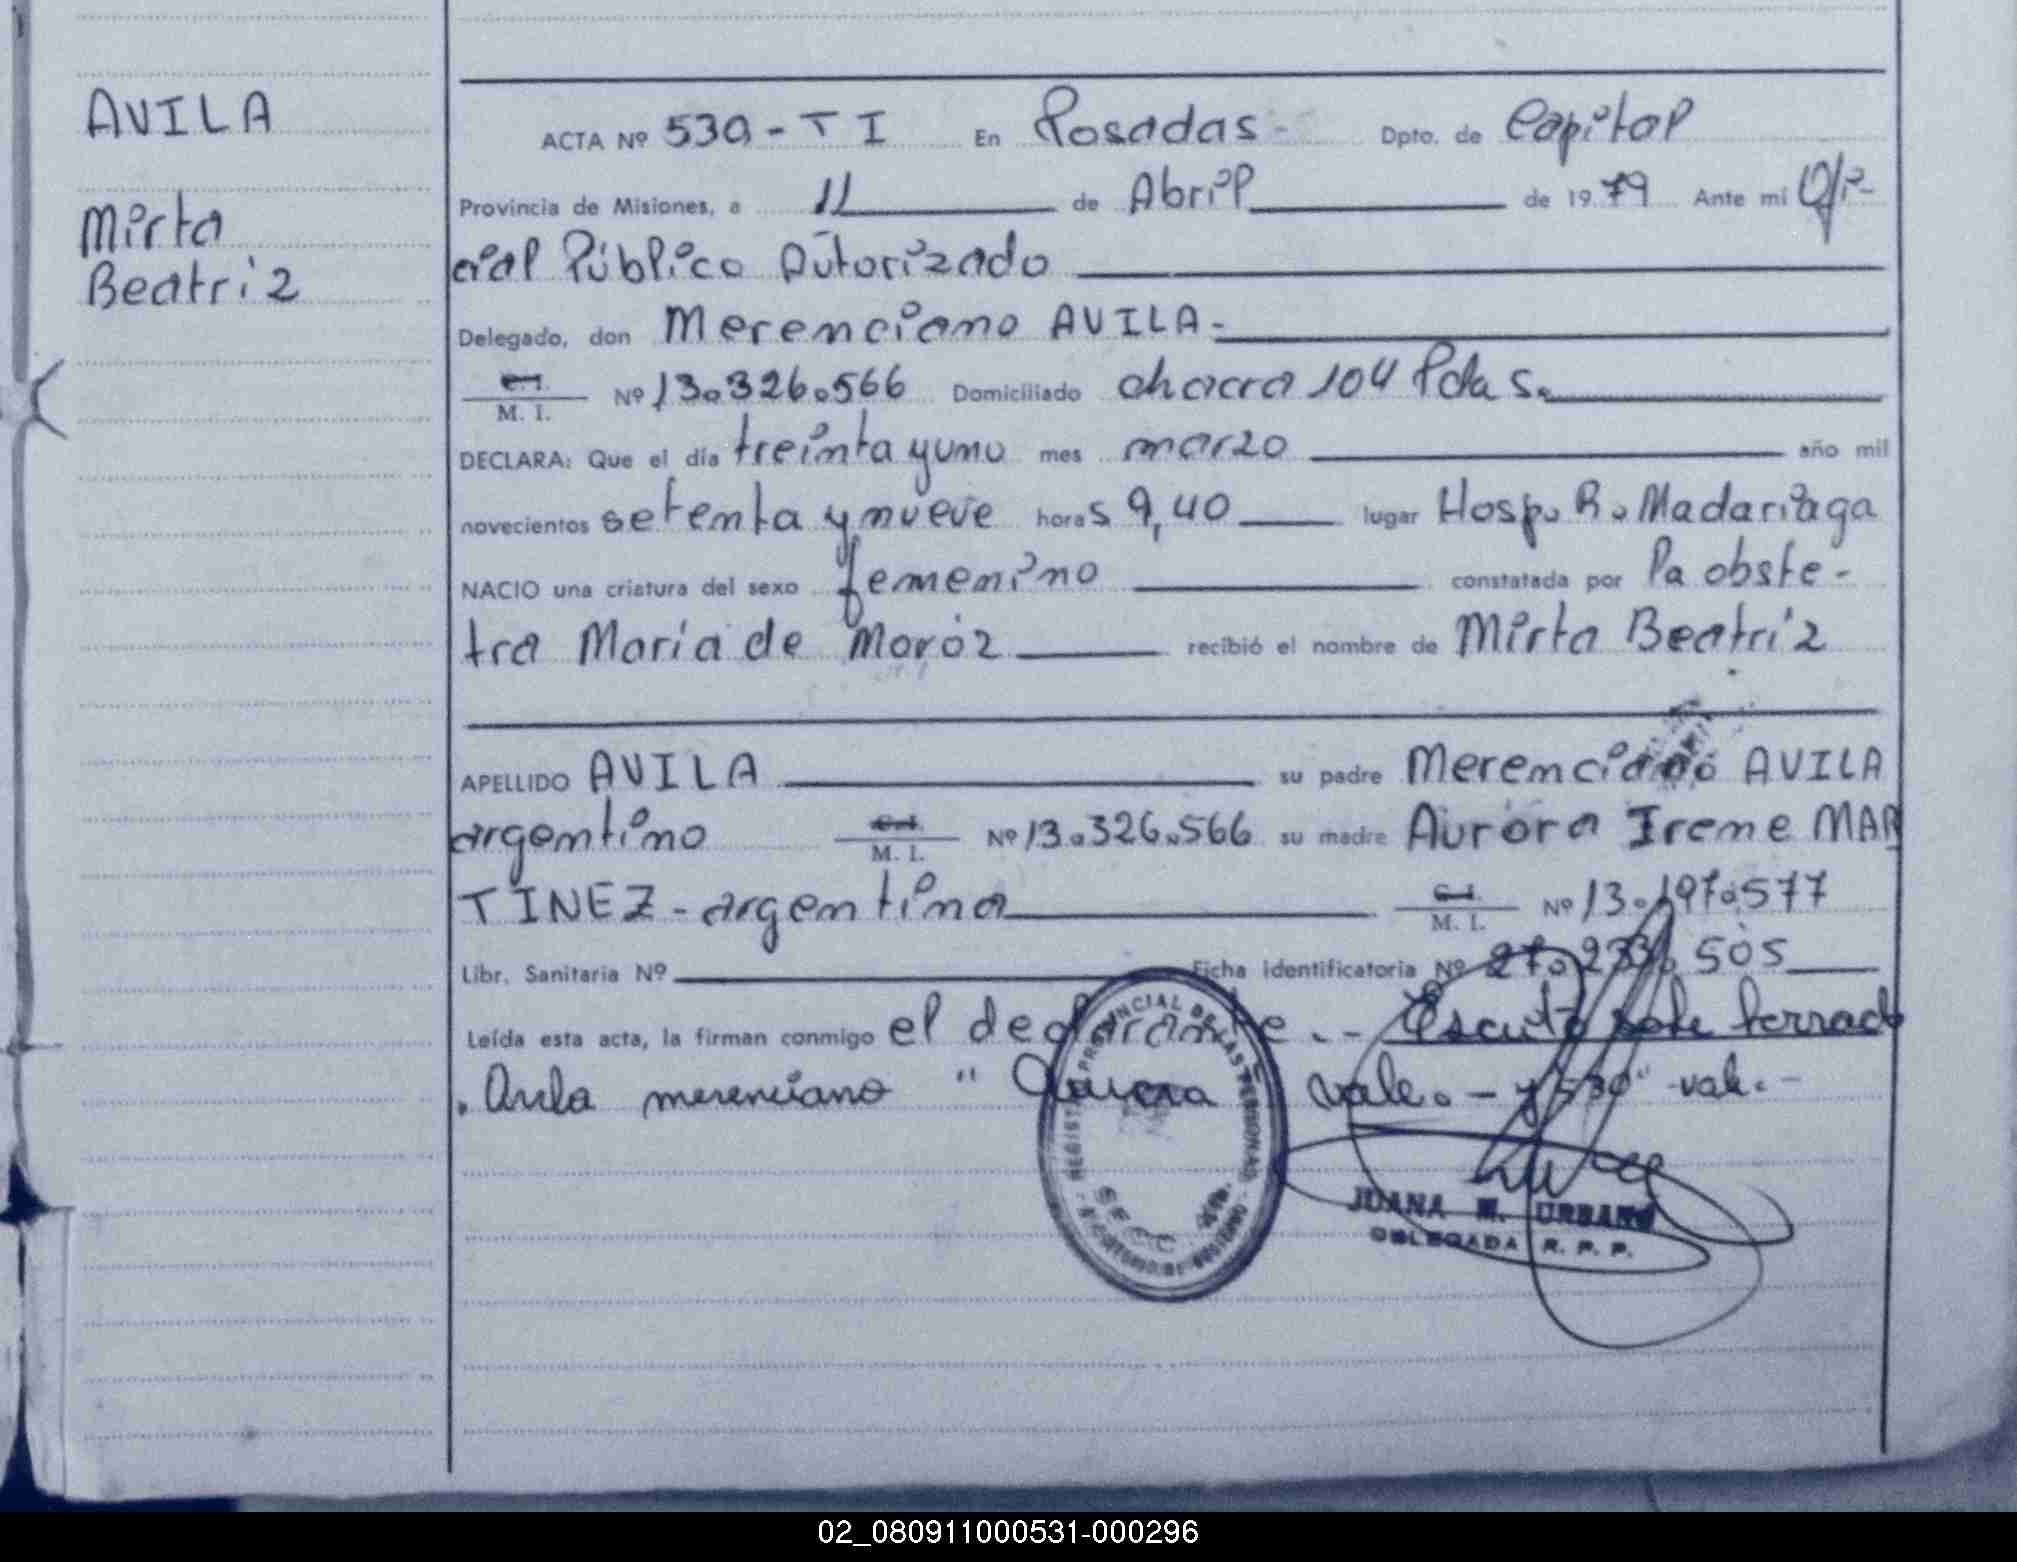 AVILA
Mirta
Beatriz
ACTA Nº 530 - T I En Posadas - Dpto. de Capital
Provincia de Misiones, a 11 de Abril de 1979 Ante mi Ofi-
cial Público Autorizado
Delegado, don Merenciano AVILA -
C.I.
M. I. Nº 13.326.566 Domiciliado chacra 104 Pdas.
DECLARA: Que el día treinta y uno mes marzo año mil
novecientos setenta y nueve horas 9,40 lugar Hosp. R. Madariaga
NACIO una criatura del sexo femenino constatada por la obste-
tra María de Moroz recibió el nombre de Mirta Beatriz
APELLIDO AVILA su padre Merenciano AVILA
argentino C.I. M. I. Nº 13.326.566 su madre Aurora Irene MAR
TINEZ - argentina C.I. M. I. Nº 13.197.577
Libr. Sanitaria Nº Ficha identificatoria Nº 27.233.505
Leída esta acta, la firman conmigo el declarante. - Escrito sobre borrado
. Avila merenciano " Aurora vale. - y "530" vale. -
REGISTRO PROVINCIAL DE LAS PERSONAS
SECC
JUANA M. URBANO
DELEGADA R. P. P.
02_080911000531-000296